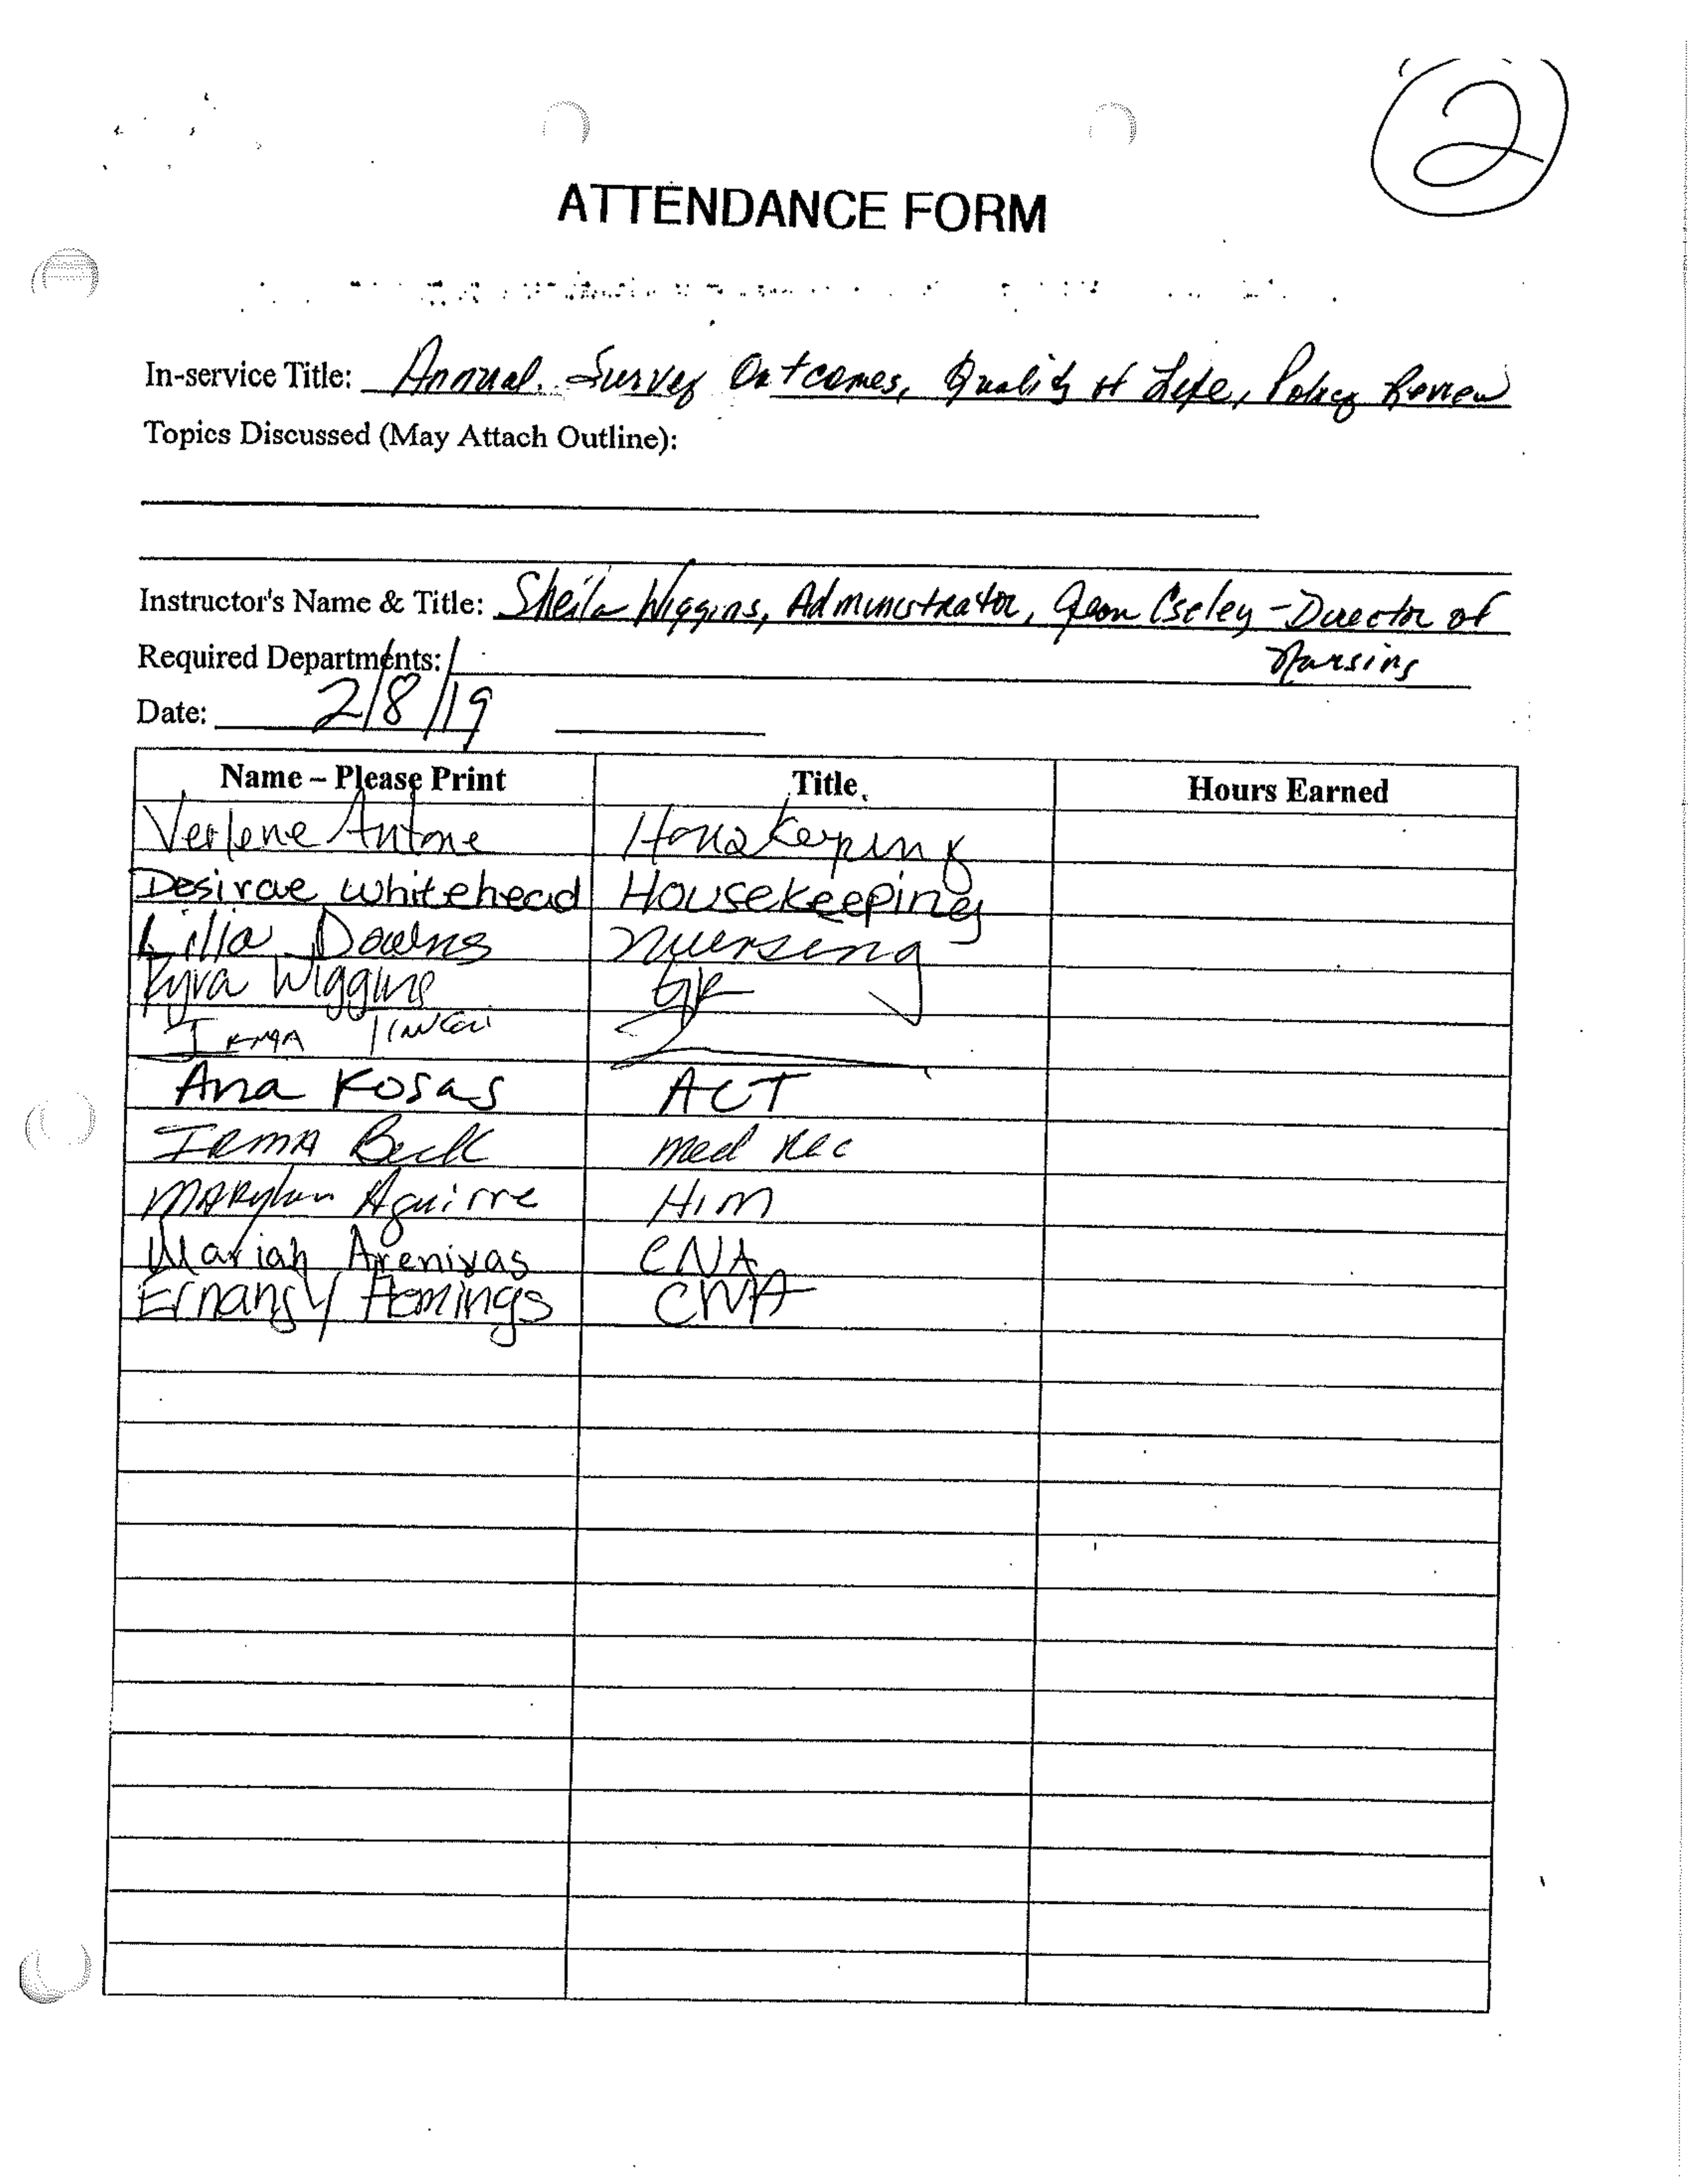 2
ATTENDANCE FORM
In-service Title: Annual Survey Outcomes, Quality of Life, Policy Review
Topics Discussed (May Attach Outline):
Instructor's Name & Title: Sheila Wiggins, Administrator, Cseley - Director of
Required Departments: Nursing
Date: 2/8/19
Name – Please Print Title Hours Earned
Verlene Antone
Desirae Whitehead Housekeeping
Lilia Downs Nursing
Kyra Wiggins
Irma
Ana Rosas ACT
Irma Beck med Rec
Marylou Aguirre HIM
Mariah Arenivas CNA
Hemings CNA